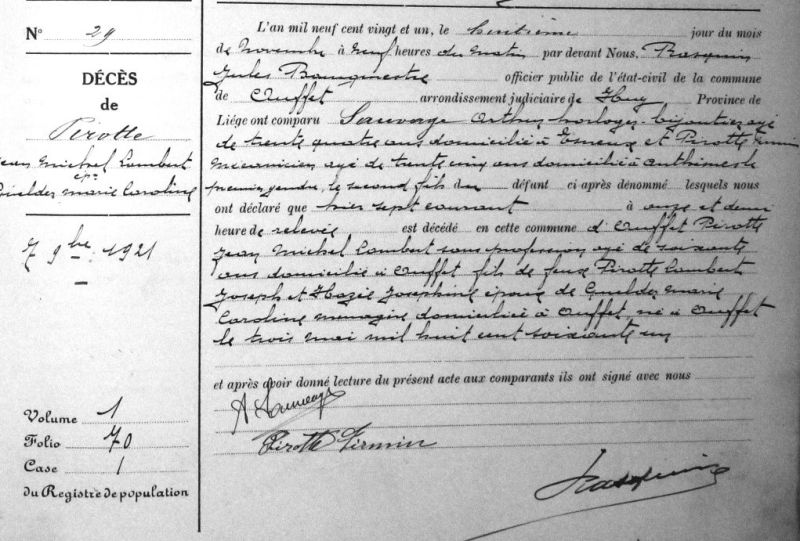 N° 29
DÉCÈS
de
Pirotte
Jean Michel Lambert
ép.
Guelder Marie Caroline
7 9bre 1921
Volume 1
Folio 70
Case 1
du Registre de population
L'an mil neuf cent vingt et un, le huitième jour du mois
de Novembre à neuf heures du matin par devant Nous, Rasquin
Jules Bourgmestre officier public de l'état-civil de la commune
de Ouffet arrondissement judiciaire de Huy Province de
Liége ont comparu Sauvage Arthur horloger-bijoutier agé
de trente quatre ans domicilié à Esneux et Pirotte Firmin
mécanicien agé de trente cinq ans domicilié à Anthisnes le
premier gendre, le second fils du défunt ci-après dénommé lesquels nous
ont déclaré que hier sept courant à onze et demi
heure de relevée est décédé en cette commune d'Ouffet Pirotte
Jean Michel Lambert sans profession agé de soixante
ans domicilié à Ouffet fils de feux Pirotte Lambert
Joseph et Hazée Josephine époux de Guelder Marie
Caroline ménagère domiciliée à Ouffet né à Ouffet
le trois mai mil huit cent soixante un
et après avoir donné lecture du présent acte aux comparants ils ont signé avec nous
A Sauvage
Pirotte Firmin
Rasquin